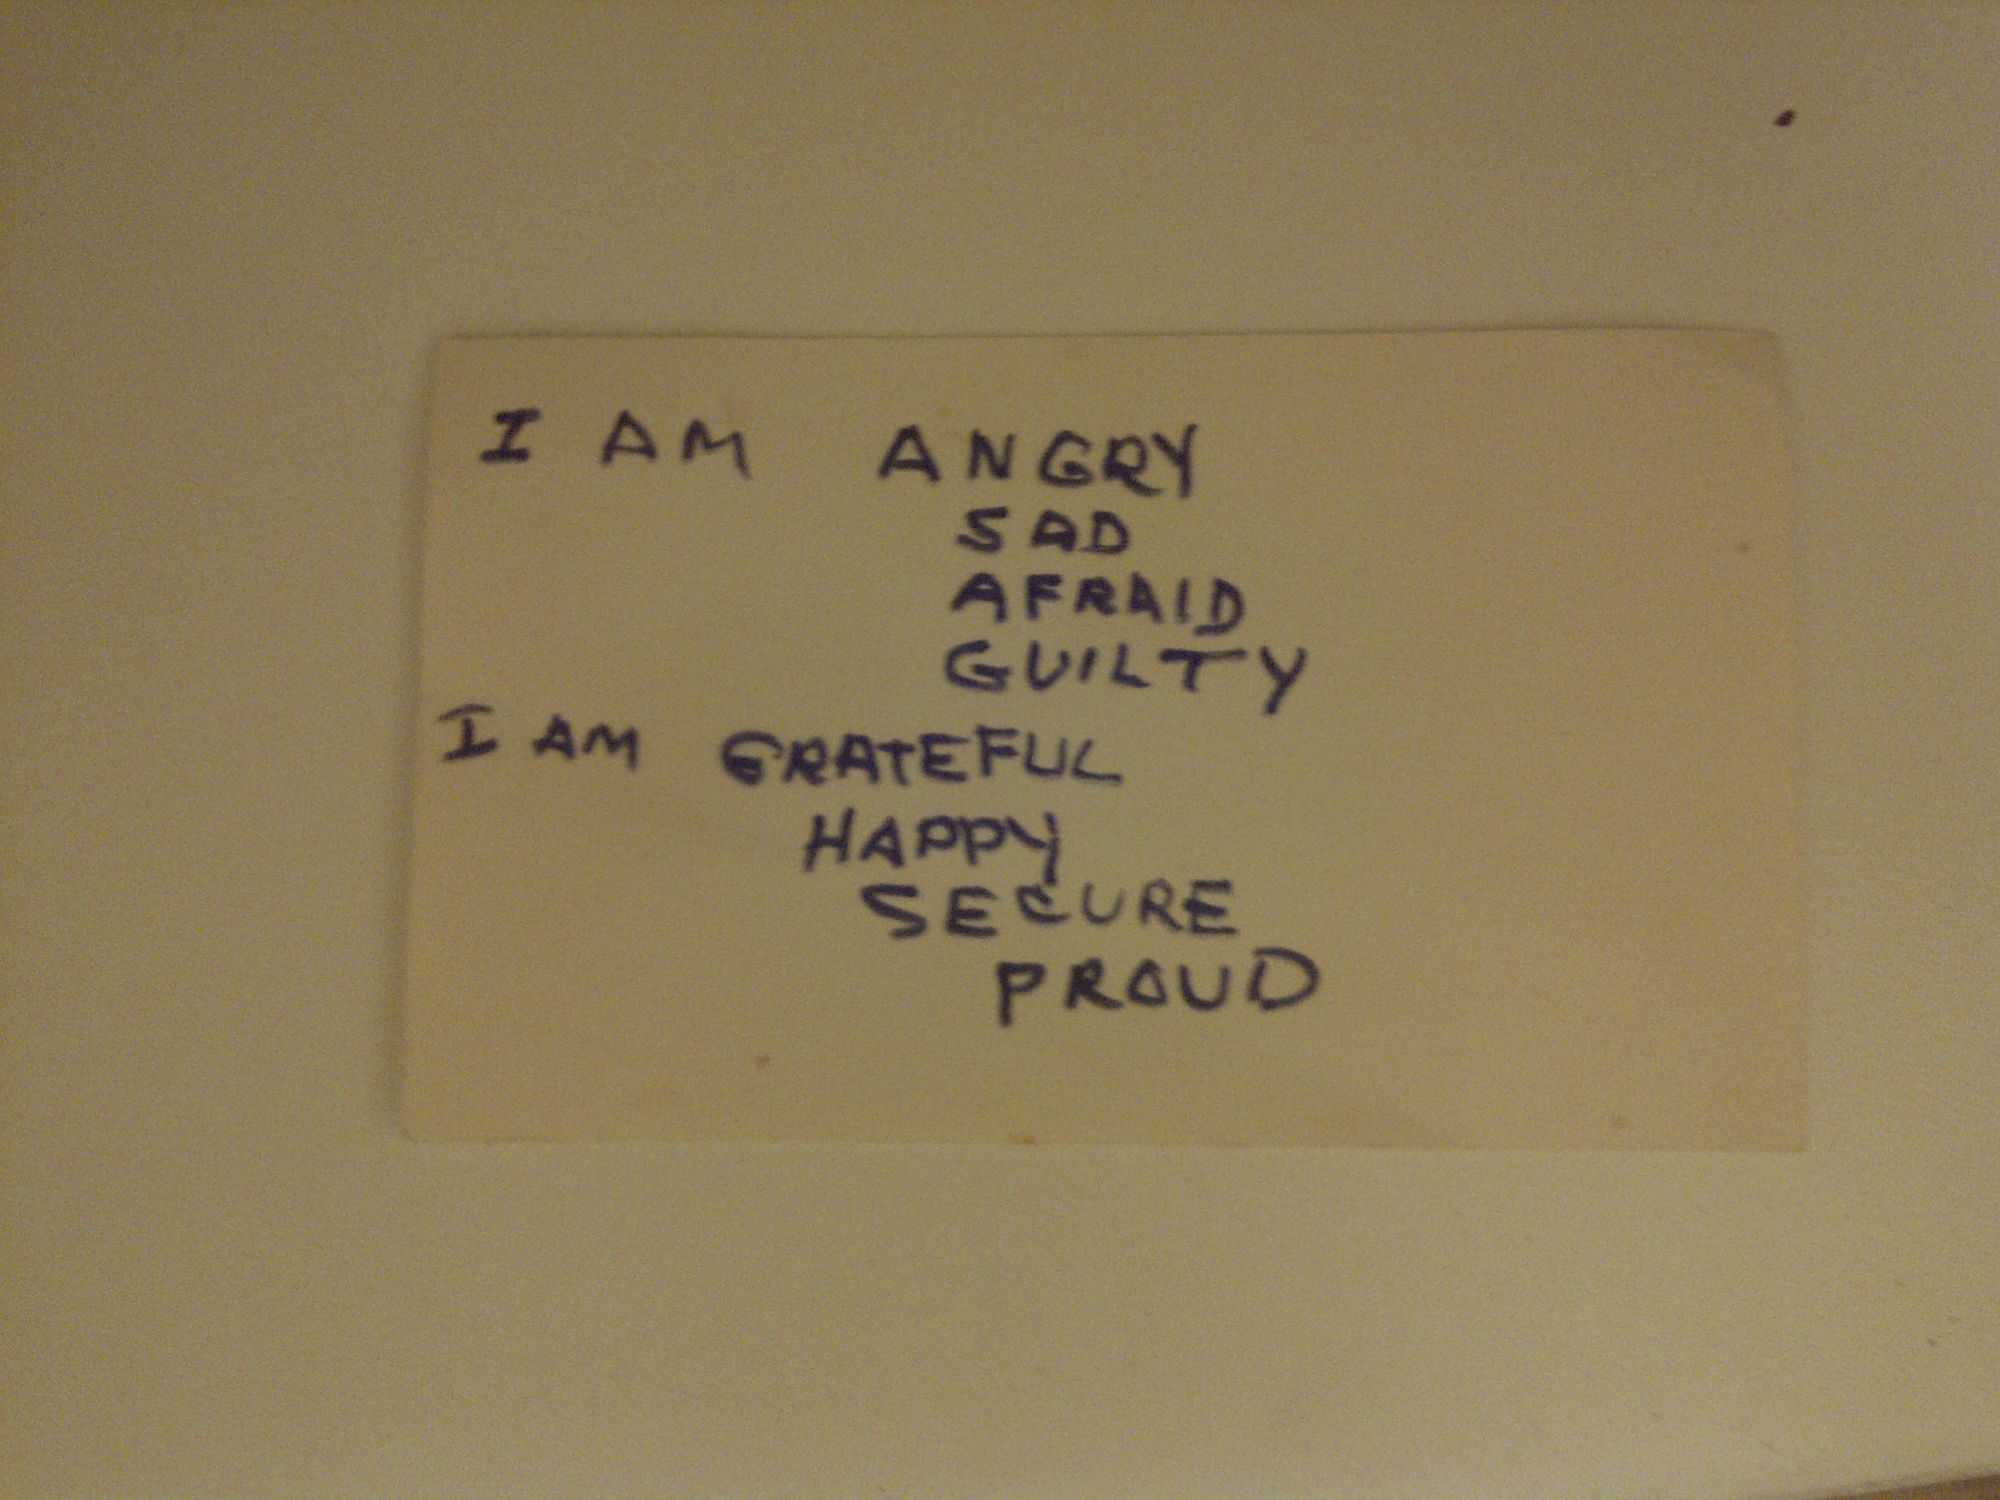 I AM ANGRY
SAD
AFRAID
GUILTY
I AM GRATEFUL
HAPPY
SECURE
PROUD